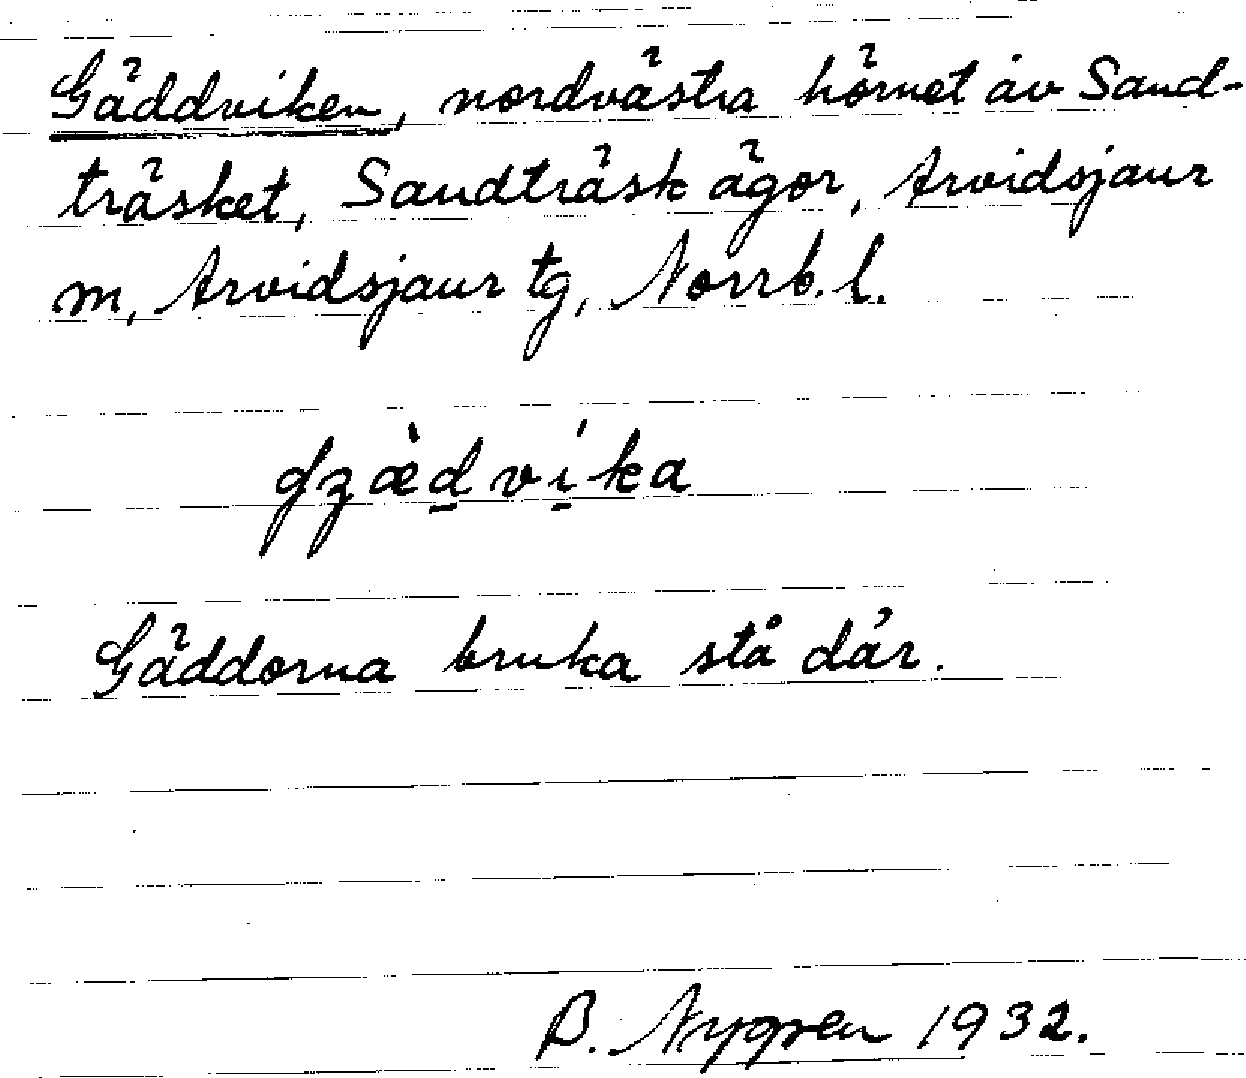 Gäddviken, nordvästra hörnet av Sand-
träsket, Sandträsk ägor, Arvidsjaur
m, Arvidsjaur tg, Norrb. l.
Gäddorna bruka stå där.
B. Nygren 1932.